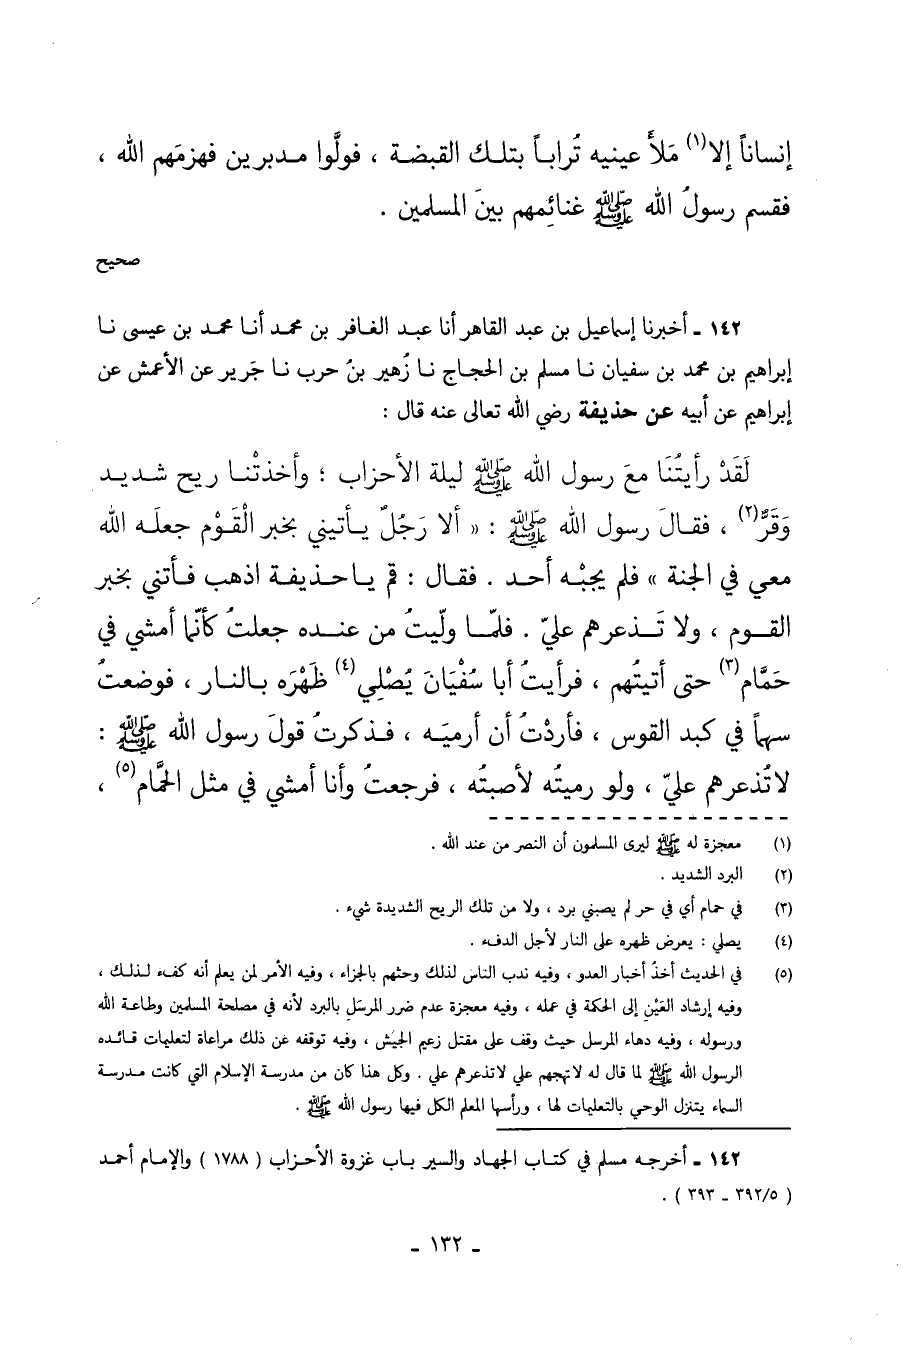 إنساناً إلا(١) مَلأَ عينيه تُراباً بتلك القبضة ، فولَّوا مدبرين فهزمَهم الله ،
فقسم رسولُ الله ﷺ غنائِمهم بينَ المسلمين .
صحيح
١٤٢ ـ أخبرنا إسماعيل بن عبد القاهر أنا عبد الغافر بن محمد أنا محمد بن عيسى نا
إبراهيم بن محمد بن سفيان نا مسلم بن الحجاج نا زُهير بنُ حرب نا جَرير عن الأعمش عن
إبراهيم عن أبيه عن حذيفة رضي الله تعالى عنه قال :
لَقَدْ رأيتُنَا معَ رسول الله ﷺ ليلة الأحزاب ؛ وأخذتْنا ريح شديد
وَقَرٌّ(٢) ، فقالَ رسول الله ﷺ : « ألا رَجُلٌ يأتيني بخبر الْقَوْم جعلَه الله
معي في الجنة » فلم يجبْه أحد . فقال : قم ياحذيفة اذهب فأتني بخبر
القوم ، ولا تَذعرهم عليّ . فلمّا ولّيتُ من عنده جعلتُ كأنّما أمشي في
حَمَّام(٣) حتى أتيتُهم ، فرأيتُ أبا سُفْيَانَ يُصْلِي(٤) ظَهْرَه بالنار ، فوضعتُ
سهماً في كبد القوس ، فأردْتُ أن أرميَه ، فذكرتُ قولَ رسول الله ﷺ :
لاتُذعرهم عليّ ، ولو رميتُه لأصبتُه ، فرجعتُ وأنا أمشي في مثل الحَّمام(٥) ،
(١) معجزة له ﷺ ليرى المسلمون أن النصر من عند الله .
(٢) البرد الشديد .
(٣) في حمام أي في حر لم يصبني برد ، ولا من تلك الريح الشديدة شيء .
(٤) يصلي : يعرض ظهره على النار لأجل الدفء .
(٥) في الحديث أخذُ أخبار العدو ، وفيه ندب الناس لذلك وحثهم بالجزاء ، وفيه الأمر لمن يعلم أنه كفء لذلك ،
وفيه إرشاد العَيْنِ إلى الحكمة في عمله ، وفيه معجزة عدم ضرر المرسَلِ بالبرد لأنه في مصلحة المسلمين وطاعة الله
ورسوله ، وفيه دهاء المرسل حيث وقف على مقتل زعيم الجيش ، وفيه توقفه عن ذلك مراعاة لتعليمات قائده
الرسول الله ﷺ لما قال له لاتهجهم علي لاتذعرهم علي . وكل هذا كان من مدرسة الإسلام التي كانت مدرسة
السماء يتنزل الوحي بالتعليمات لها ، ورأسها المعلم الكل فيها رسول الله ﷺ .
١٤٢ ـ أخرجه مسلم في كتاب الجهاد والسير باب غزوة الأحزاب ( ١٧٨٨ ) والإمام أحمد
( ٥/ ٣٩٢ ـ ٣٩٣ ) .
ـ ١٣٢ ـ